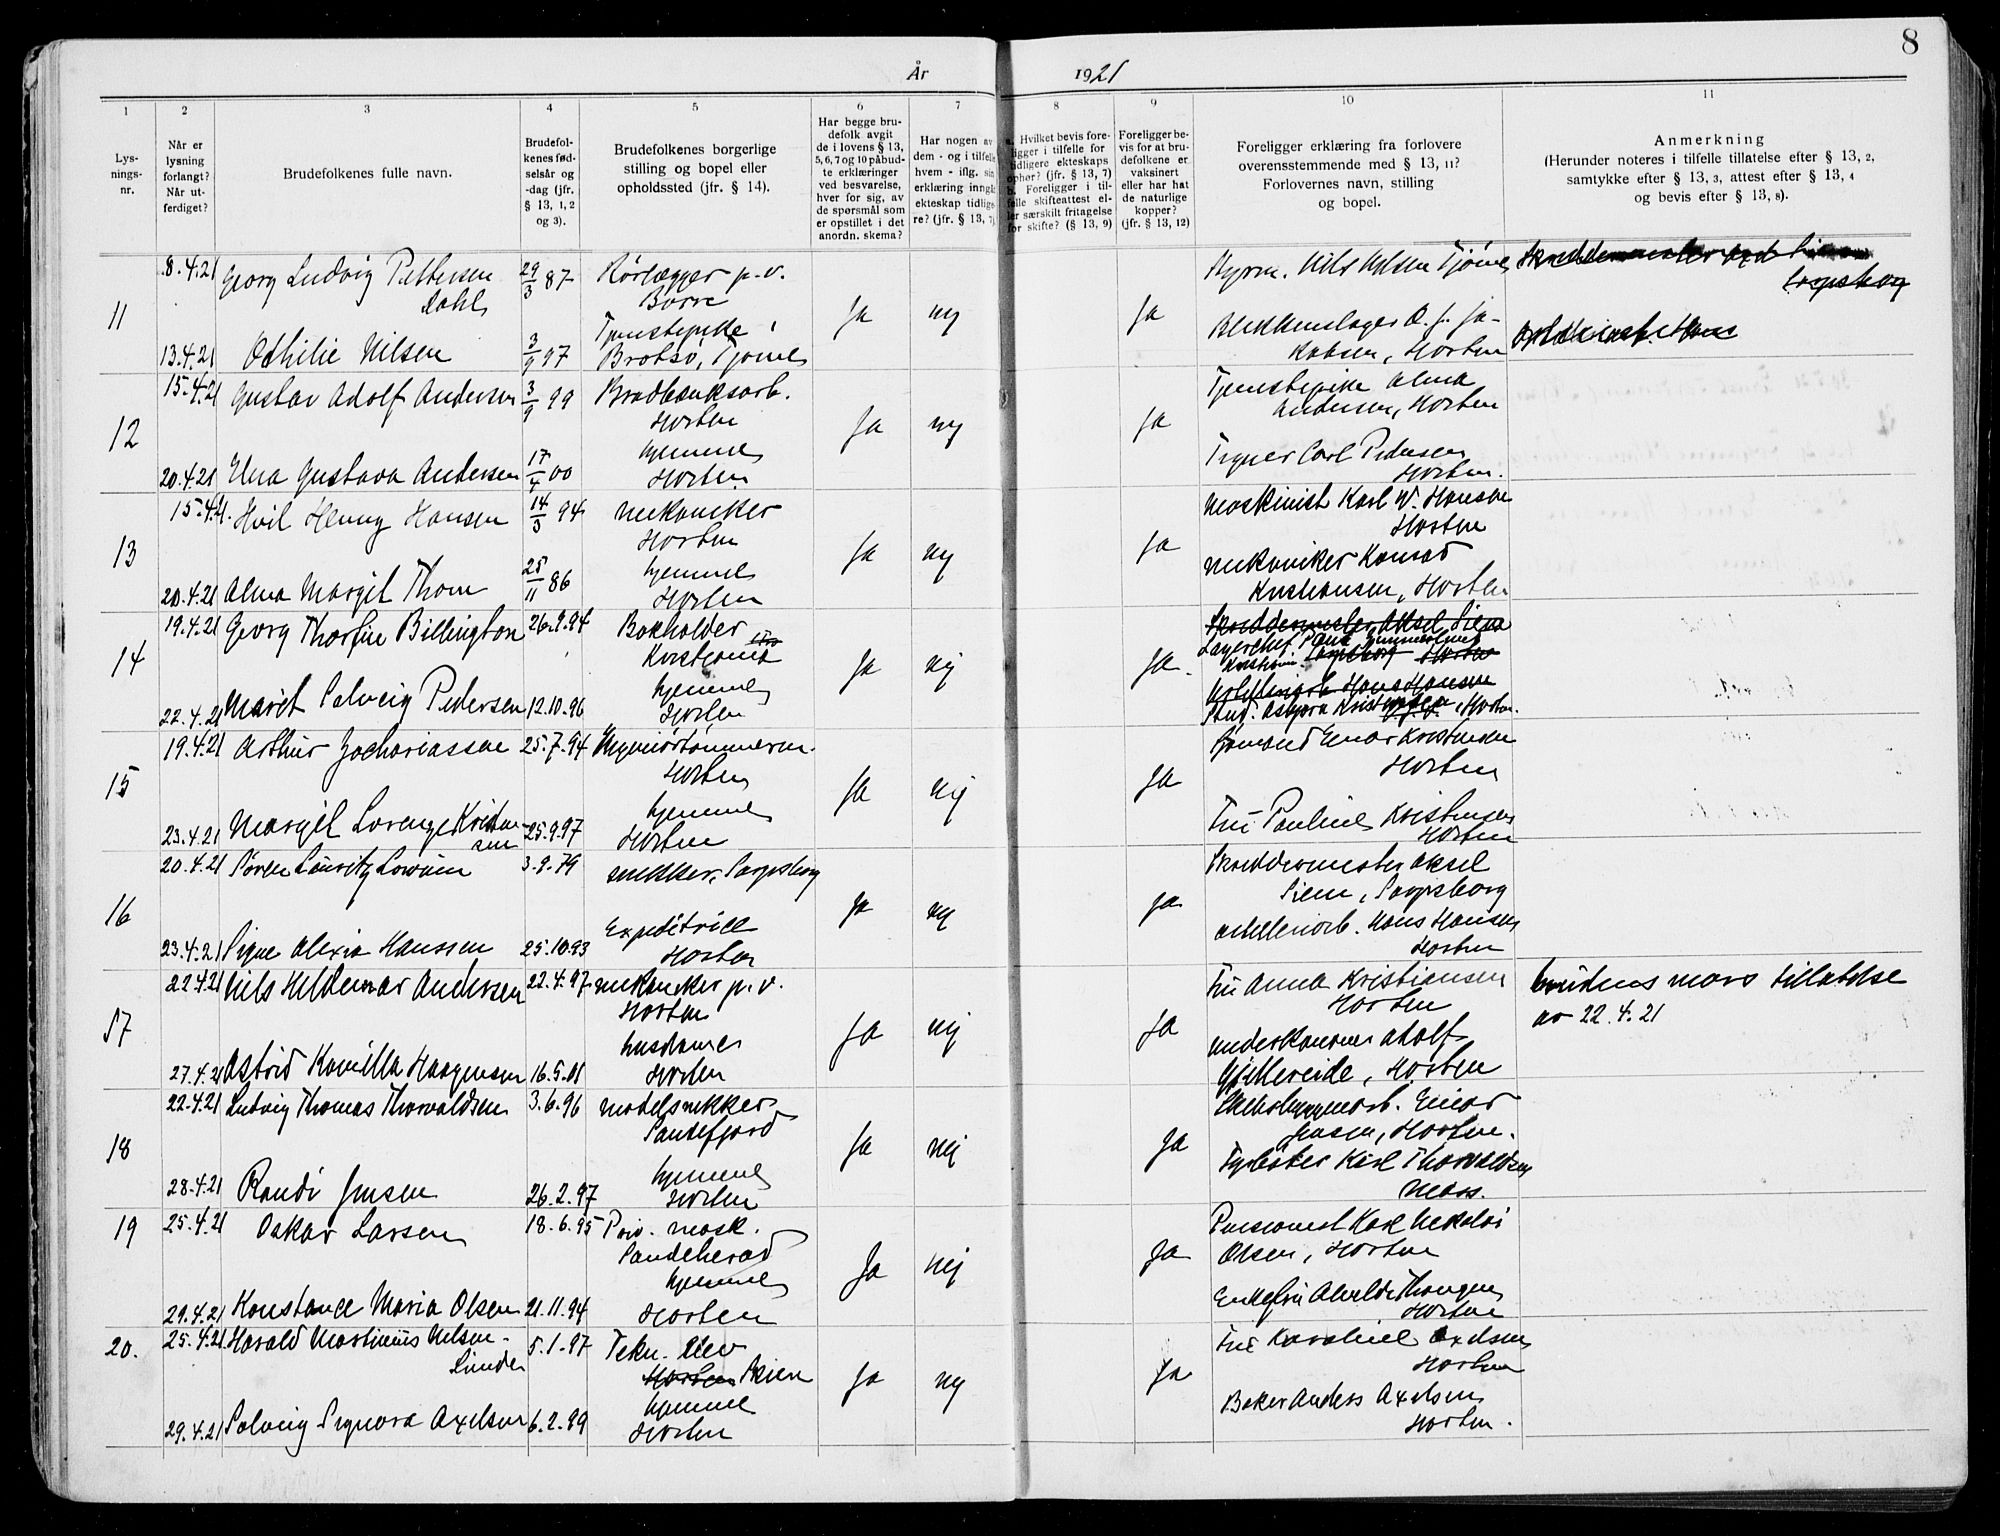 8
År 1921
1
2
3
4
5
6
7
8
9
10
11
Lys-
nings-
nr.
Når er
lysning
forlangt?
Når ut-
ferdiget?
Brudefolkenes fulle navn.
Brudefol-
kenes fød-
selsår og
-dag (jfr.
§ 13, 1, 2
og 3).
Brudefolkenes borgerlige
stilling og bopel eller
opholdssted (jfr. § 14).
Har begge bru-
defolk avgit
de i lovens § 13,
5, 6, 7 og 10 påbud-
te erklæringer
ved besvarelse,
hver for sig, av
de spørsmål som
er opstillet i det
anordn. skema?
Har nogen av
dem - og i tilfelle
hvem - iflg. sin
erklæring inngå
ekteskap tidlige
re? (jfr. § 13, 7)
a. Hvilket bevis fore-
ligger i tilfelle for
tidligere ekteskaps
ophør? (jfr. § 13, 7)
b. Foreligger i til-
felle skifteattest el-
ler særskilt fritagelse
for skifte? (§ 13, 9)
Foreligger be-
vis for at bru-
defolkene er
vaksinert
eller har hat
de naturlige
kopper?
(jfr. § 13, 12)
Foreligger erklæring fra forlovere
overensstemmende med § 13, 11?
Forlovernes navn, stilling
og bopel.
Anmerkning
(Herunder noteres i tilfelle tillatelse efter § 13, 2,
samtykke efter § 13, 3, attest efter § 13, 4
og bevis efter § 13, 8).
11
8.4.21 Georg Ludvig Pettersen
Dahl
29/3 87
Rørlegger p.v.
Borre
Ja
nej
Ja
Styrm. Nils Nilsen Tjøme
13.4.21 Othilie Nilsen
3/9 97
Tjenestepike,
Brotsø, Tjøme
Blikkenslager O. J. Ja-
kobsen, Horten
Sarpsborg
12
15.4.21 Gustav Adolf Andersen
3/9 99
Brødbanksarb.
Horten
Ja
nej
Ja
Tjenestepike Alma
Andersen, Horten
20.4.21 Elna Gustava Andersen
17/4 00
hjemme
Horten
Carl Pedersen
Horten.
13
15.4.21. Hvil Henny Hansen
14/3 94
mekaniker
Horten
Ja
nej
Ja
Maskinist Karl W. Hansen
Horten
20.4.21 Alma Margit Thom
25/11 86
hjemme
Horten
mekaniker Konrad
Kristiansen, Horten
14
19.4.21 Georg Thorfin Billington
26.9.94
Bokholder
Kristiania
Ja
nej
Ja.
Skreddermester Aksel Siem
Lagerchef
Kristiania. Sarpsborg Horten
22.4.21 Marit Solveig Pedersen
12.10.96
hjemme
Horten
Hans Hansen
Stud. Asbjørn Kristensen, Horten.
15
19.4.21 Arthur Zachariassen
25.7.94
Horten
Ja
nej
Ja
Sjømand Einar Kristensen
Horten
23.4.21 Margit Lorenze Kristen-
sen
25.9.97
hjemme
Horten
Frü Pauline Kristensen
Horten
16
20.4.21 Søren Lauritz
3.9.79
snekker, Sarpsborg
Ja
nej
Ja
Skreddermester Aksel
Siem, Sarpsborg
23.4.21 Signe Alexia Hanssen
25.10.93
Expeditrice
Horten
artilleriarb. Hans Hansen
Horten
17
22.4.21 Nils Hildemar Andersen
22.4.97
mekaniker p.v.
Horten
Ja
nej
Ja
Frü Anna Kristiansen
Horten
brudens mors tillatelse
av 22.4.21
27.4.21 Astrid Kamilla Haagensen
16.5.01
husdame
Horten
underkanoner Adolf
Gjellereide, Horten
18
22.4.21 Ludvig Thomas Thorvaldsen
3.6.96
modelsnekker
Sandefjord
Ja
nej
Ja
Skibsbyggerarb. Einar
Jensen, Horten.
28.4.21 Randi Jensen
26.2.97
hjemme
Horten
Fyrbøter Karl Thorvaldsen
Moss.
19
25.4.21 Oskar Larsen
18.6.95
Priv. mask.
Sandeherad
Ja
nej
Ja
Pensionist Karl Nikolai
Olsen, Horten
29.4.21 Konstance Maria Olsen
21.11.94
hjemme
Horten
Enkefrü Alvilde Thorgersen
Horten
20.
25.4.21 Harald Martinius Nilsen-
Linde
5.1.97
Tekn. elev
Horten Skien
Ja
nej
Ja
Frü Karoline Axelsen
Horten
29.4.21 Solveig Signora Axelsen
6.2.99
hjemme
Horten
Baker Anders Axelsen
Horten.